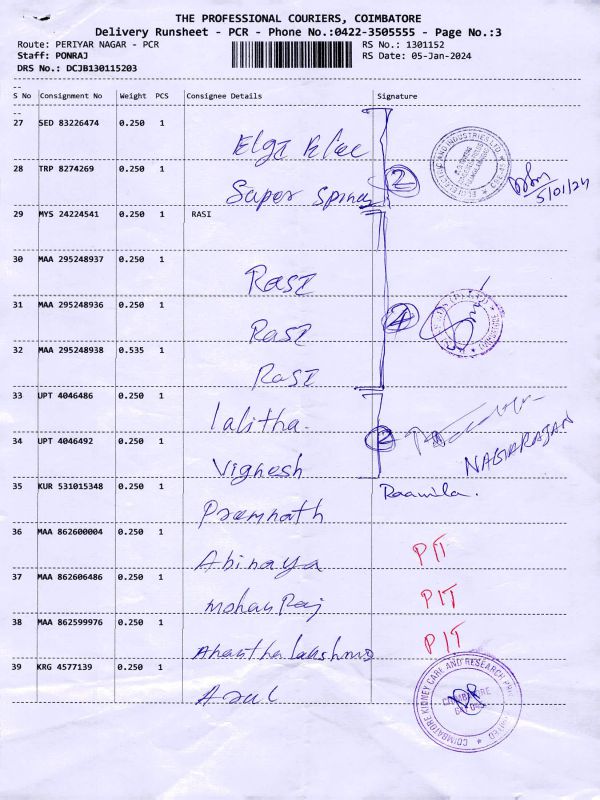 THE PROFESSIONAL COURIERS, COIMBATORE
Delivery Runsheet - PCR - Phone No.:0422-3505555 - Page No.:3
Route: PERIYAR NAGAR - PCR
RS No.: 1301152
Staff: PONRAJ
RS Date: 05-Jan-2024
DRS No.: DCJB130115203
S No Consignment No Weight PCS Consignee Details Signature
27 SED 83226474 0.250 1
Elgi Elec
28 TRP 8274269 0.250 1
Super Spinng
2
5/01/24
29 MYS 24224541 0.250 1 RASI
30 MAA 295248937 0.250 1
RASI
31 MAA 295248936 0.250 1
RASI
4
32 MAA 295248938 0.535 1
RASI
33 UPT 4046486 0.250 1
lalitha.
2
34 UPT 4046492 0.250 1
Vighesh
NAGARAJAN
35 KUR 531015348 0.250 1
Premnath
36 MAA 862600004 0.250 1
Abinaya
PIT
37 MAA 862606486 0.250 1
Mohan Raj
PIT
38 MAA 862599976 0.250 1
PIT
39 KRG 4577139 0.250 1
Arul
COIMBATORE KIDNEY CARE AND RESEARCH PRIVATE LIMITED
COIMBATORE